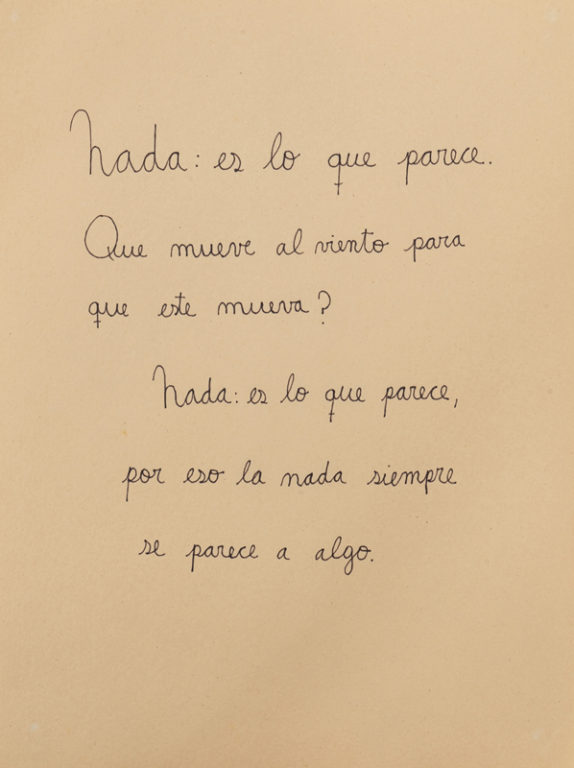 Nada: es lo que parece.
Que mueve al viento para
que este mueva?
Nada: es lo que parece,
por eso la nada siempre
se parece a algo.